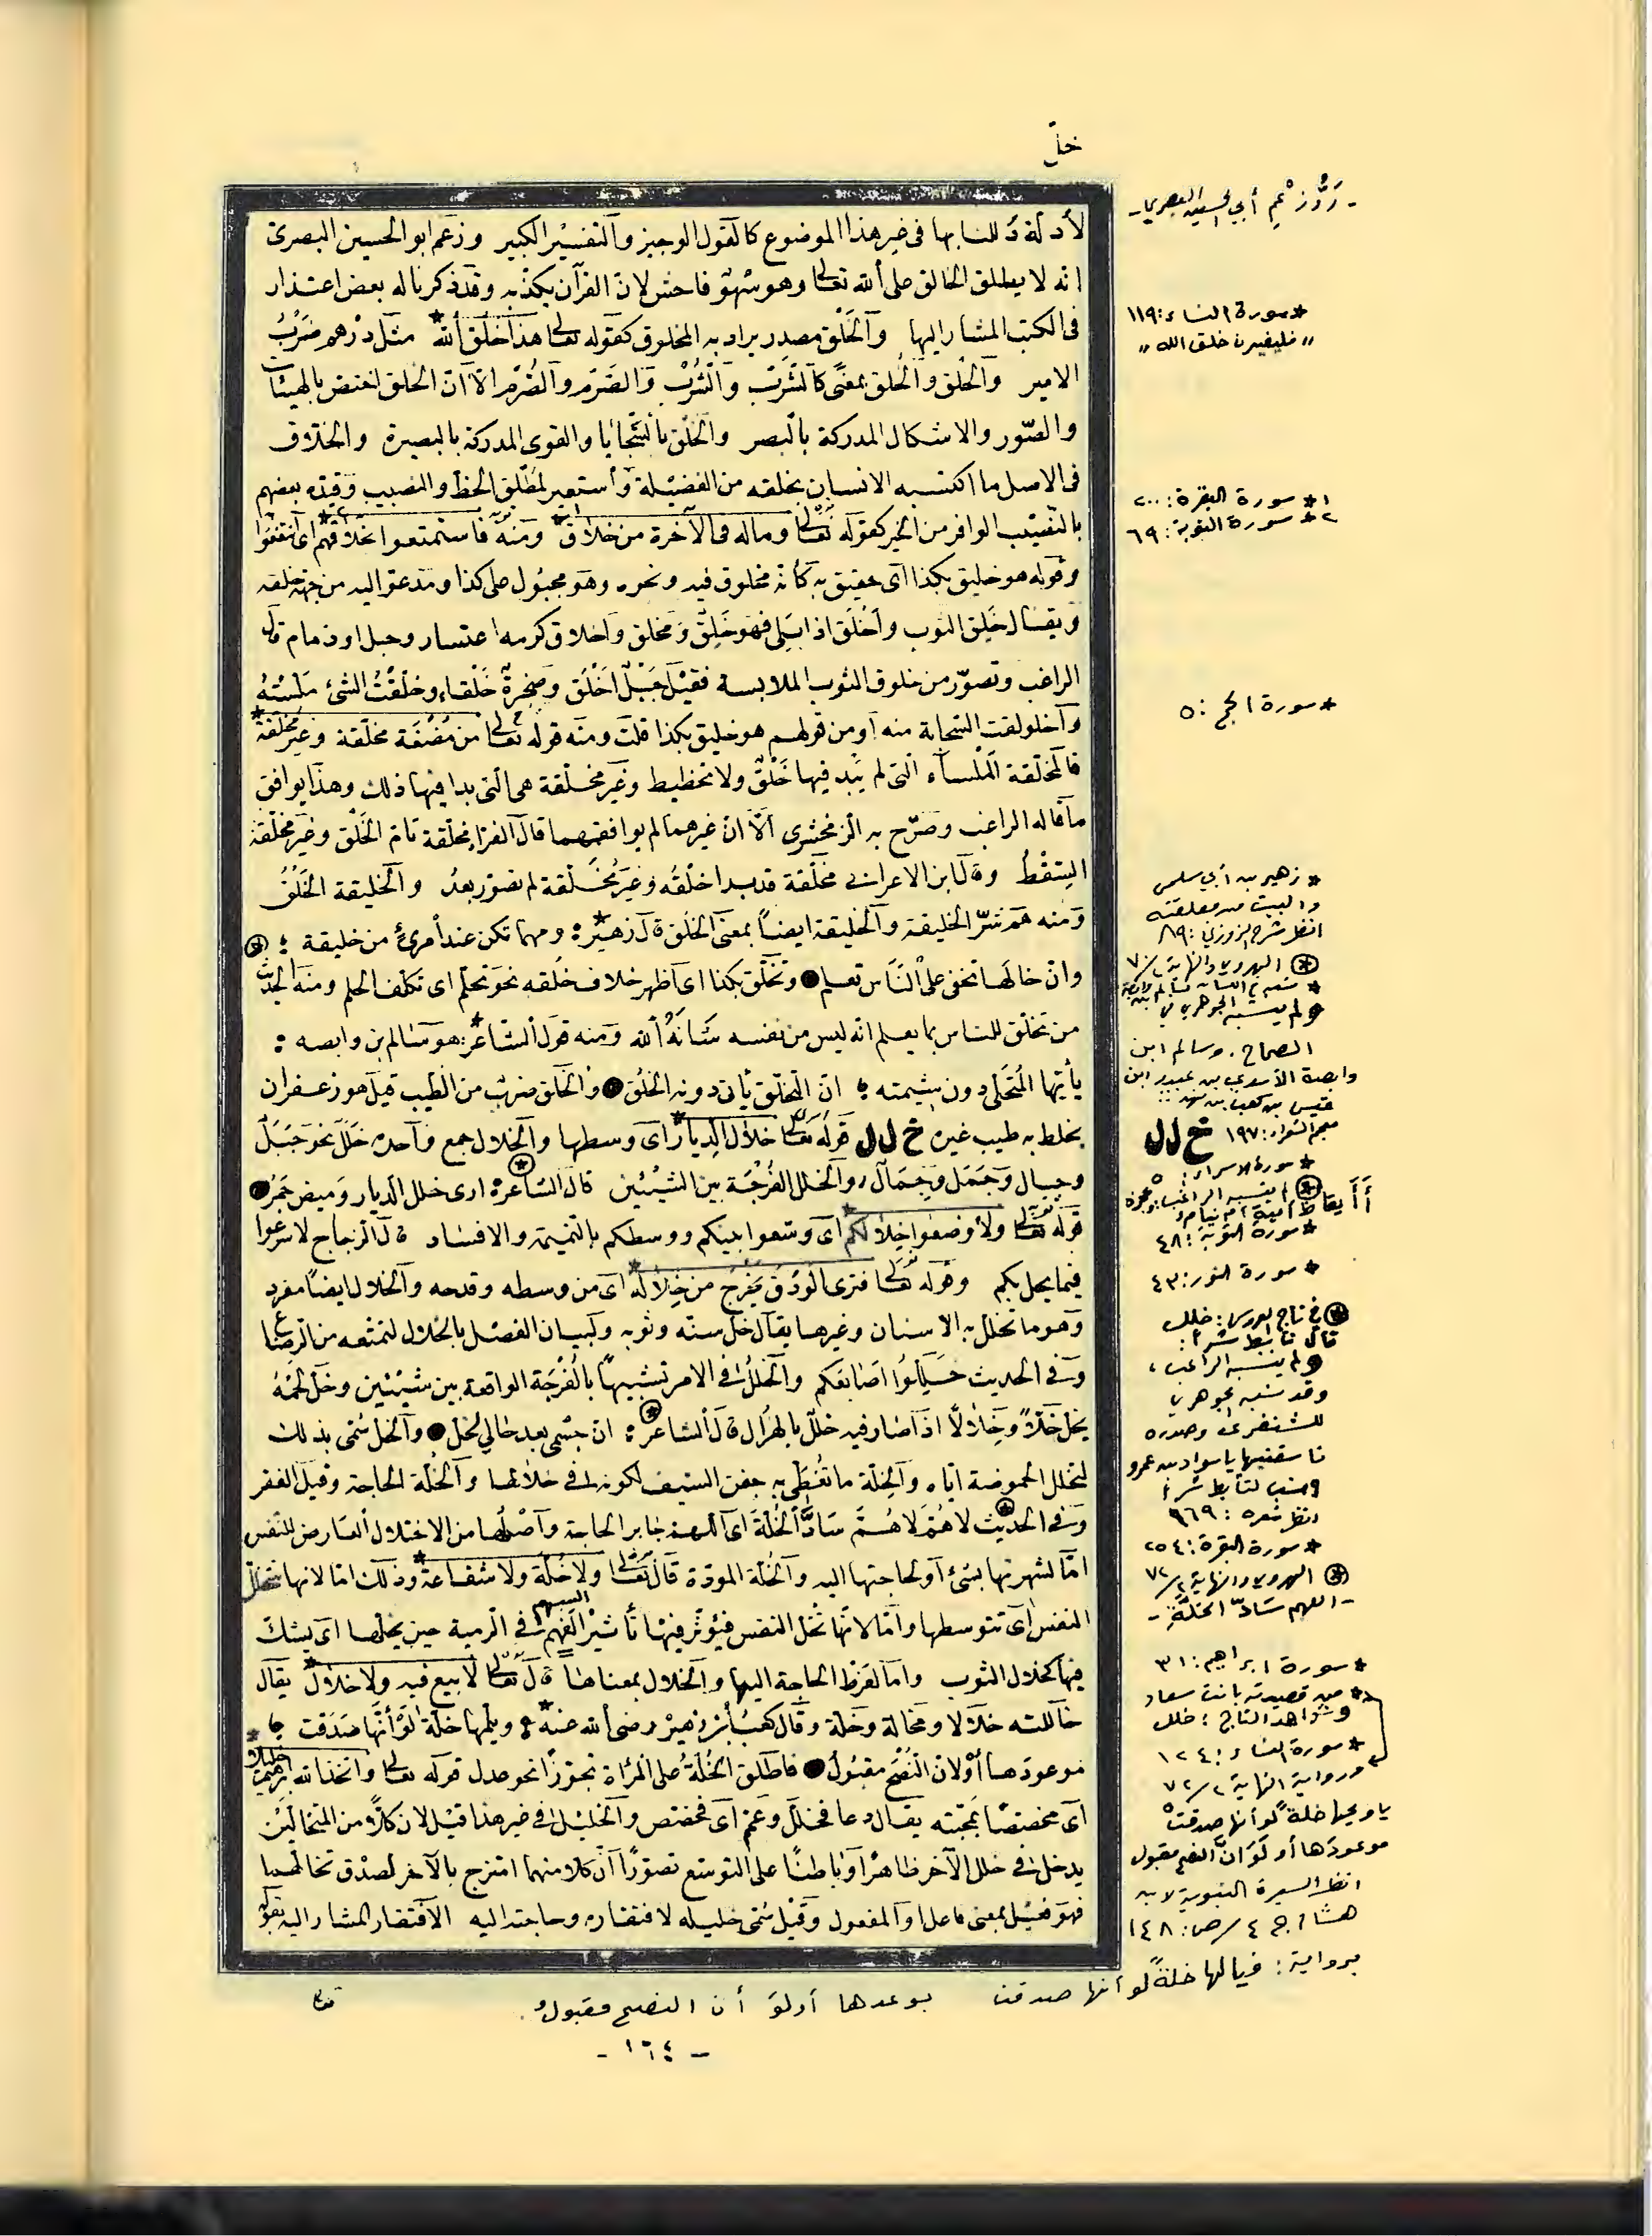 خلّ
لأدلة دللنا بها فى غير هذا الموضوع كالقول الوجيز والتفسير الكبير وزعم ابو الحسين البصرى
انه لا يطلق الخالق على الله تعالى وهو سهو فاحش لان القرآن يكذبه وقد ذكرنا له بعض اعتذار
فى الكتب المشار اليها والخلق مصدر يراد به المخلوق كقوله تعالى هذا خلق الله* مثل درهم ضرب
الامير والخلق والخلق بمعنى كالشرب والشرب والصرم والصرم الا ان الخلق اختص بالهيئات
والصور والاشكال المدركة بالبصر والخلق بالسجايا والقوى المدركة بالبصيرة والخلاق
فى الاصل ما اكتسبه الانسان بخلقه من الفضيلة وأستعير لمطلق الحظ والنصيب وقيده بعضهم
بالنصيب الوافر من الخير كقوله تعالى وماله فى الآخرة من خلاق*١ ومنه فاستمتعوا بخلاقهم*٢ اى انتفعوا
وقوله هو خليق بكذا اى حقيق به كأنه مخلوق فيه ونحوه وهو مجبول على كذا ومدعو اليه من جهة خلقه
ويقال خلق الثوب وأخلق اذا بلى فهو خلق ومخلق وأخلاق كرمه اعتسار وحبل اوذمام قال
الراغب وتصور من خلوق الثوب الملابسة فقيل جبل أخلق وصخرة خلقاء وخلقت الشئ ملسته
وأخلولقت السحابة منه أو من قولهم هو خليق بكذا قلت ومنه قوله تعالى من مضغة مخلقة وغير مخلقة*
فالمخلقة الملساء التى لم يبد فيها خلق ولا تخطيط وغير مخلقة هى التى بدا فيها ذلك وهذا يوافق
ما قاله الراغب وصرح به الزمخشرى الا ان غيرهما لم يوافقهما قال الفراء مخلقة تام الخلق وغير مخلقة
السقط وقال ابن الاعرابى مخلقة قد بدا خلقه وغير مخلقة لم تصور بعد والخليقة الخلق
ومنه هم شر الخليقة والخليقة ايضاً بمعنى الخلق قال زهير*: ومهما تكن عند أمرئ من خليقة ؛
وان خالها تخفى على الناس تعلم ● وتخلق بكذا اى اظهر خلاف خلقه نحو تحلم اى تكلف الحلم ومنه الحديث
من تخلق للناس بما يعلم انه ليس من نفسه شانه الله ومنه قول الشاعر* هو سالم بن وابصه :
يأيها المتحلى دون شيمته ؛ ان التخلق يأتى دونه الخلق ● والخلق ضرب من الطيب قيل هو زعفران
يخلط به طيب غيره خ ل ل قوله تعالى خلال الديار* اى وسطها والخلال جمع واحده خلل نحو جبل
وجبال وجمل وجمال والخلل الفرجة بين الشيئين قال الشاعر: ارى خلل الديار وميض جمر ●
قوله تعالى ولأوضعوا خلالكم* اى وسعوا بينكم ووسطكم بالنميمة والافساد قال الزجاج لاسرعوا
فيما يحل بكم وقوله تعالى فترى الودق يخرج من خلاله* اى من وسطه وقدحه والخلال ايضاً مفرد
وهو ما تخلل به الاسنان وغيرها يقال خل سنه وثوبه
وفى الحديث خللوا اصابعكم والخلل فى الامر تشبيهاً بالفرجة الواقعة بين شيئين وخل لحمه
يخل خلاً وخلالاً اذا صار فيه خلل بالهزال قال الشاعر: ان جسمى بعد خالى لخل ● والخل سمى بذلك
لتخلل الحموضة اياه والخلة ما تغطى به جفن السيف لكونه فى خلالها والخلة الحاجة وقيل الفقر
وفى الحديث لاهم لاهم ساد الخلة اى اللهم جابر الحاجة وأصلها من الاختلال العارض للنفس
اما لشهوتها بشئ او لحاجتها اليه والخلة المودة قال تعالى ولا خلة ولا شفاعة* وذلك اما لانها تتخلل
النفس اى تتوسطها واما لانها تخل النفس فيؤثر فيها تأثير السهم فى الرمية حين يخلها اى يشك
فيها كخلال الثوب واما لفرط الحاجة اليها والخلال بمعناها قال تعالى لا بيع فيه ولا خلال* يقال
خاللته خلالا ومخالة وخلة وقال كعب بن زهير رضى الله عنه*: ويلمها خلة لو أنها صدقت ؛
موعودها أو لو ان النصح مقبول ● فاطلق الخلة على المرأة تجوزاً نحو عدل قوله تعالى واتخذ الله ابرهيم خليلا*
اى مختصاً بمحبته يقال دعا فخلل وعم اى فخصص والخليل فى غير هذا قيل لان كلاً من المتخالين
يدخل فى خلل الآخر ظاهراً او باطناً على التوسع تصوراً ان كلا منهما امتزج بالآخر لصدق تخالهما
فهو فعيل بمعنى فاعل او المفعول وقيل سمى خليله لافتقاره وحاجته اليه الافتقار المشار اليه بقوله
- رَدُّ زعم أبي الحسين البصري -
* سورة النساء: ١١٩
" فليغيرن خلق الله "
١* سورة البقرة: ٢٠٠
٢* سورة التوبة: ٦٩
* سورة الحج: ٥
* زهير بن أبي سلمى
والبيت من معلقته
انظر شرح الزوزني: ٨٩
الهروي والنهاية ٢/٧٠
ولم ينسبه الجوهري في
الصحاح. وسالم ابن
وابصة الأسدي بن عبيد ابن
قيس بن كعب بن نهد
معجم الشعراء: ١٩٧ خ ل ل
* سورة الاسراء: ٥
لم ينسبه الراغب وعجزه
أأيقاظ أمية أم نيام
* سورة التوبة: ٤٨
* سورة النور: ٤٣
في تاج العروس: خلل
قال تأبط شراً:
ولم ينسبه الراغب،
وقد نسبه الجوهري
للشنفرى وصدره
فاسقنيها يا سواد بن عمرو
ونسب لتأبط شراً
انظر شعره: ١٦٩
* سورة البقرة: ٢٥٤
الهروي والنهاية ٢/٧٢
- اللهم سادّ الخلّة -
* سورة ابراهيم: ٣١
* من قصيدته بانت سعاد
وشواهد التاج: خلل
* سورة النساء: ١٢٤
ورواية النهاية ٢/٧٢
يا ويحها خلة لو أنها صدقت
موعودها أو لو ان النصح مقبول
انظر السيرة النبوية لابن
هشام ج ٤ / ص: ١٤٨
برواية: فيا لها خلةً لو أنها صدقت بوعدها أو لو أن النصح مقبول.
- ١٦٤ -